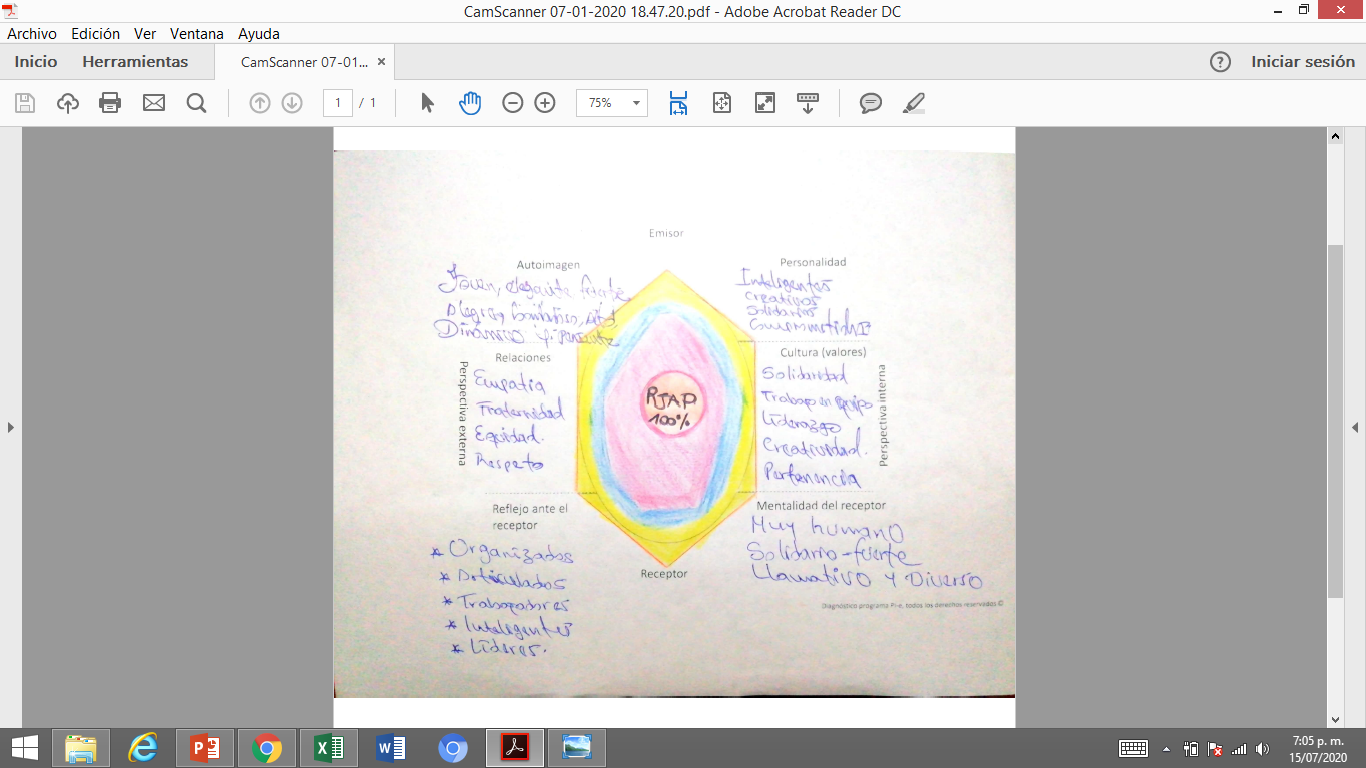 CamScanner 07-01-2020 18.47.20.pdf - Adobe Acrobat Reader DC
Archivo Edición Ver Ventana Ayuda
Inicio Herramientas CamScanner 07-01... × Iniciar sesión
1 / 1 75%
Emisor
Autoimagen
Joven, elegante fuerte,
Dinámico y
Personalidad
Inteligentes
Creativos
Solidarios
Relaciones
Empatia
Fraternidad
Equidad.
Respeto
Perspectiva externa
RJAP
100%
Cultura (valores)
Solidaridad
Trabajo en equipo
Liderazgo
Creatividad.
Pertenencia
Perspectiva interna
Reflejo ante el
receptor
* Organizados
* Articulados
* Trabajadores
* Inteligentes
* Líderes.
Receptor
Mentalidad del receptor
Muy humano
Solidario - fuerte
Llamativo y Diverso
Diagnóstico programa PI-e, todos los derechos reservados ©
7:05 p. m.
15/07/2020